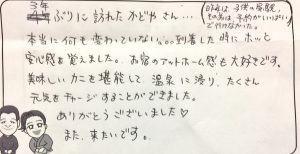 3年ぶりに訪れたかどやさん…
昨年は、子供の受験、
その前は、予約がいっぱい
で行けなかった。
本当に何も変わっていない。。。到着した時にホッと
安心感を覚えました。お宿のアットホーム感も大好きです。
美味しいカニを堪能して、温泉に浸り、たくさん
元気をチャージすることができました。
ありがとうございました♡
また、来たいです。